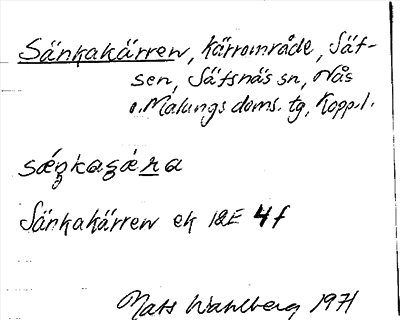 Sänkakärren, Kärrområde, Säf-
sen, Säfsnäs sn, Nås
o. Malungs doms. tg, Kopp.l.
Sänkakärren ek 12E 4f
Mats Wahlberg 1971